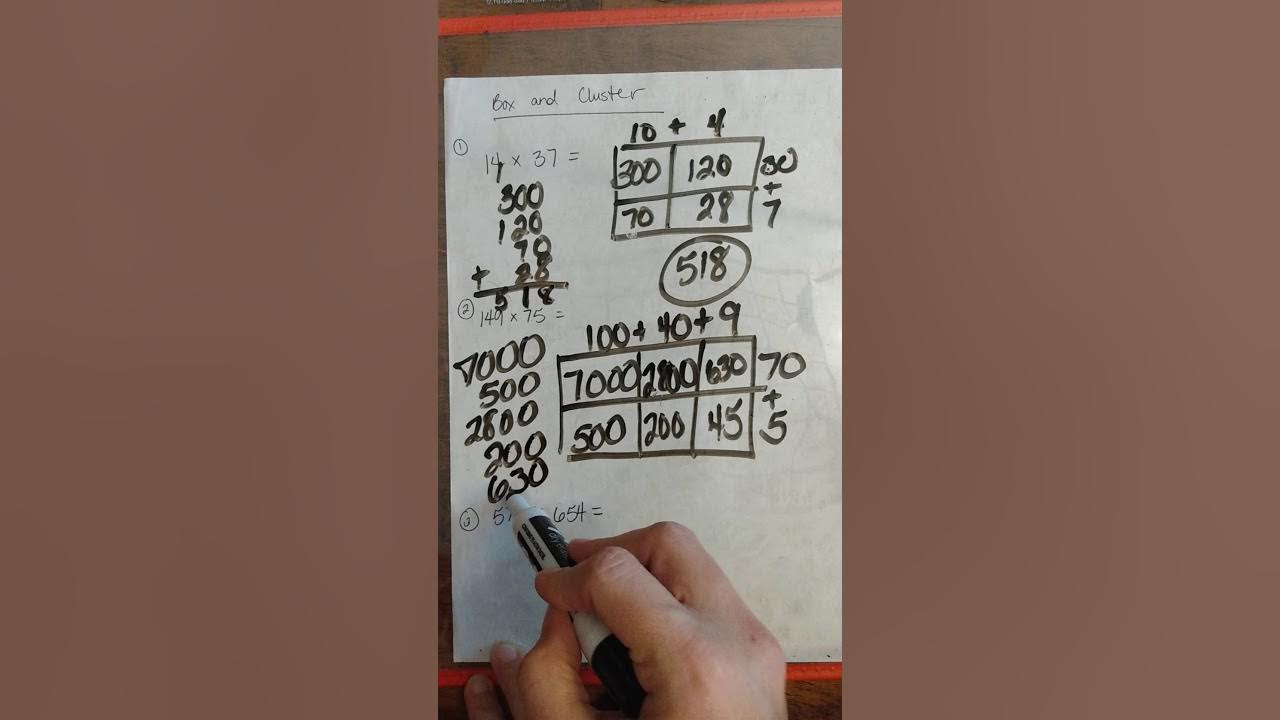 Box and Cluster
① 14 × 37 =
300
120
70
+ 28
518
10 + 4
300 120 30
+
70 28 7
518
② 149 × 75 =
7000
500
2800
200
630
100 + 40 + 9
7000 2800 630 70
+
500 200 45 5
③ 654 =